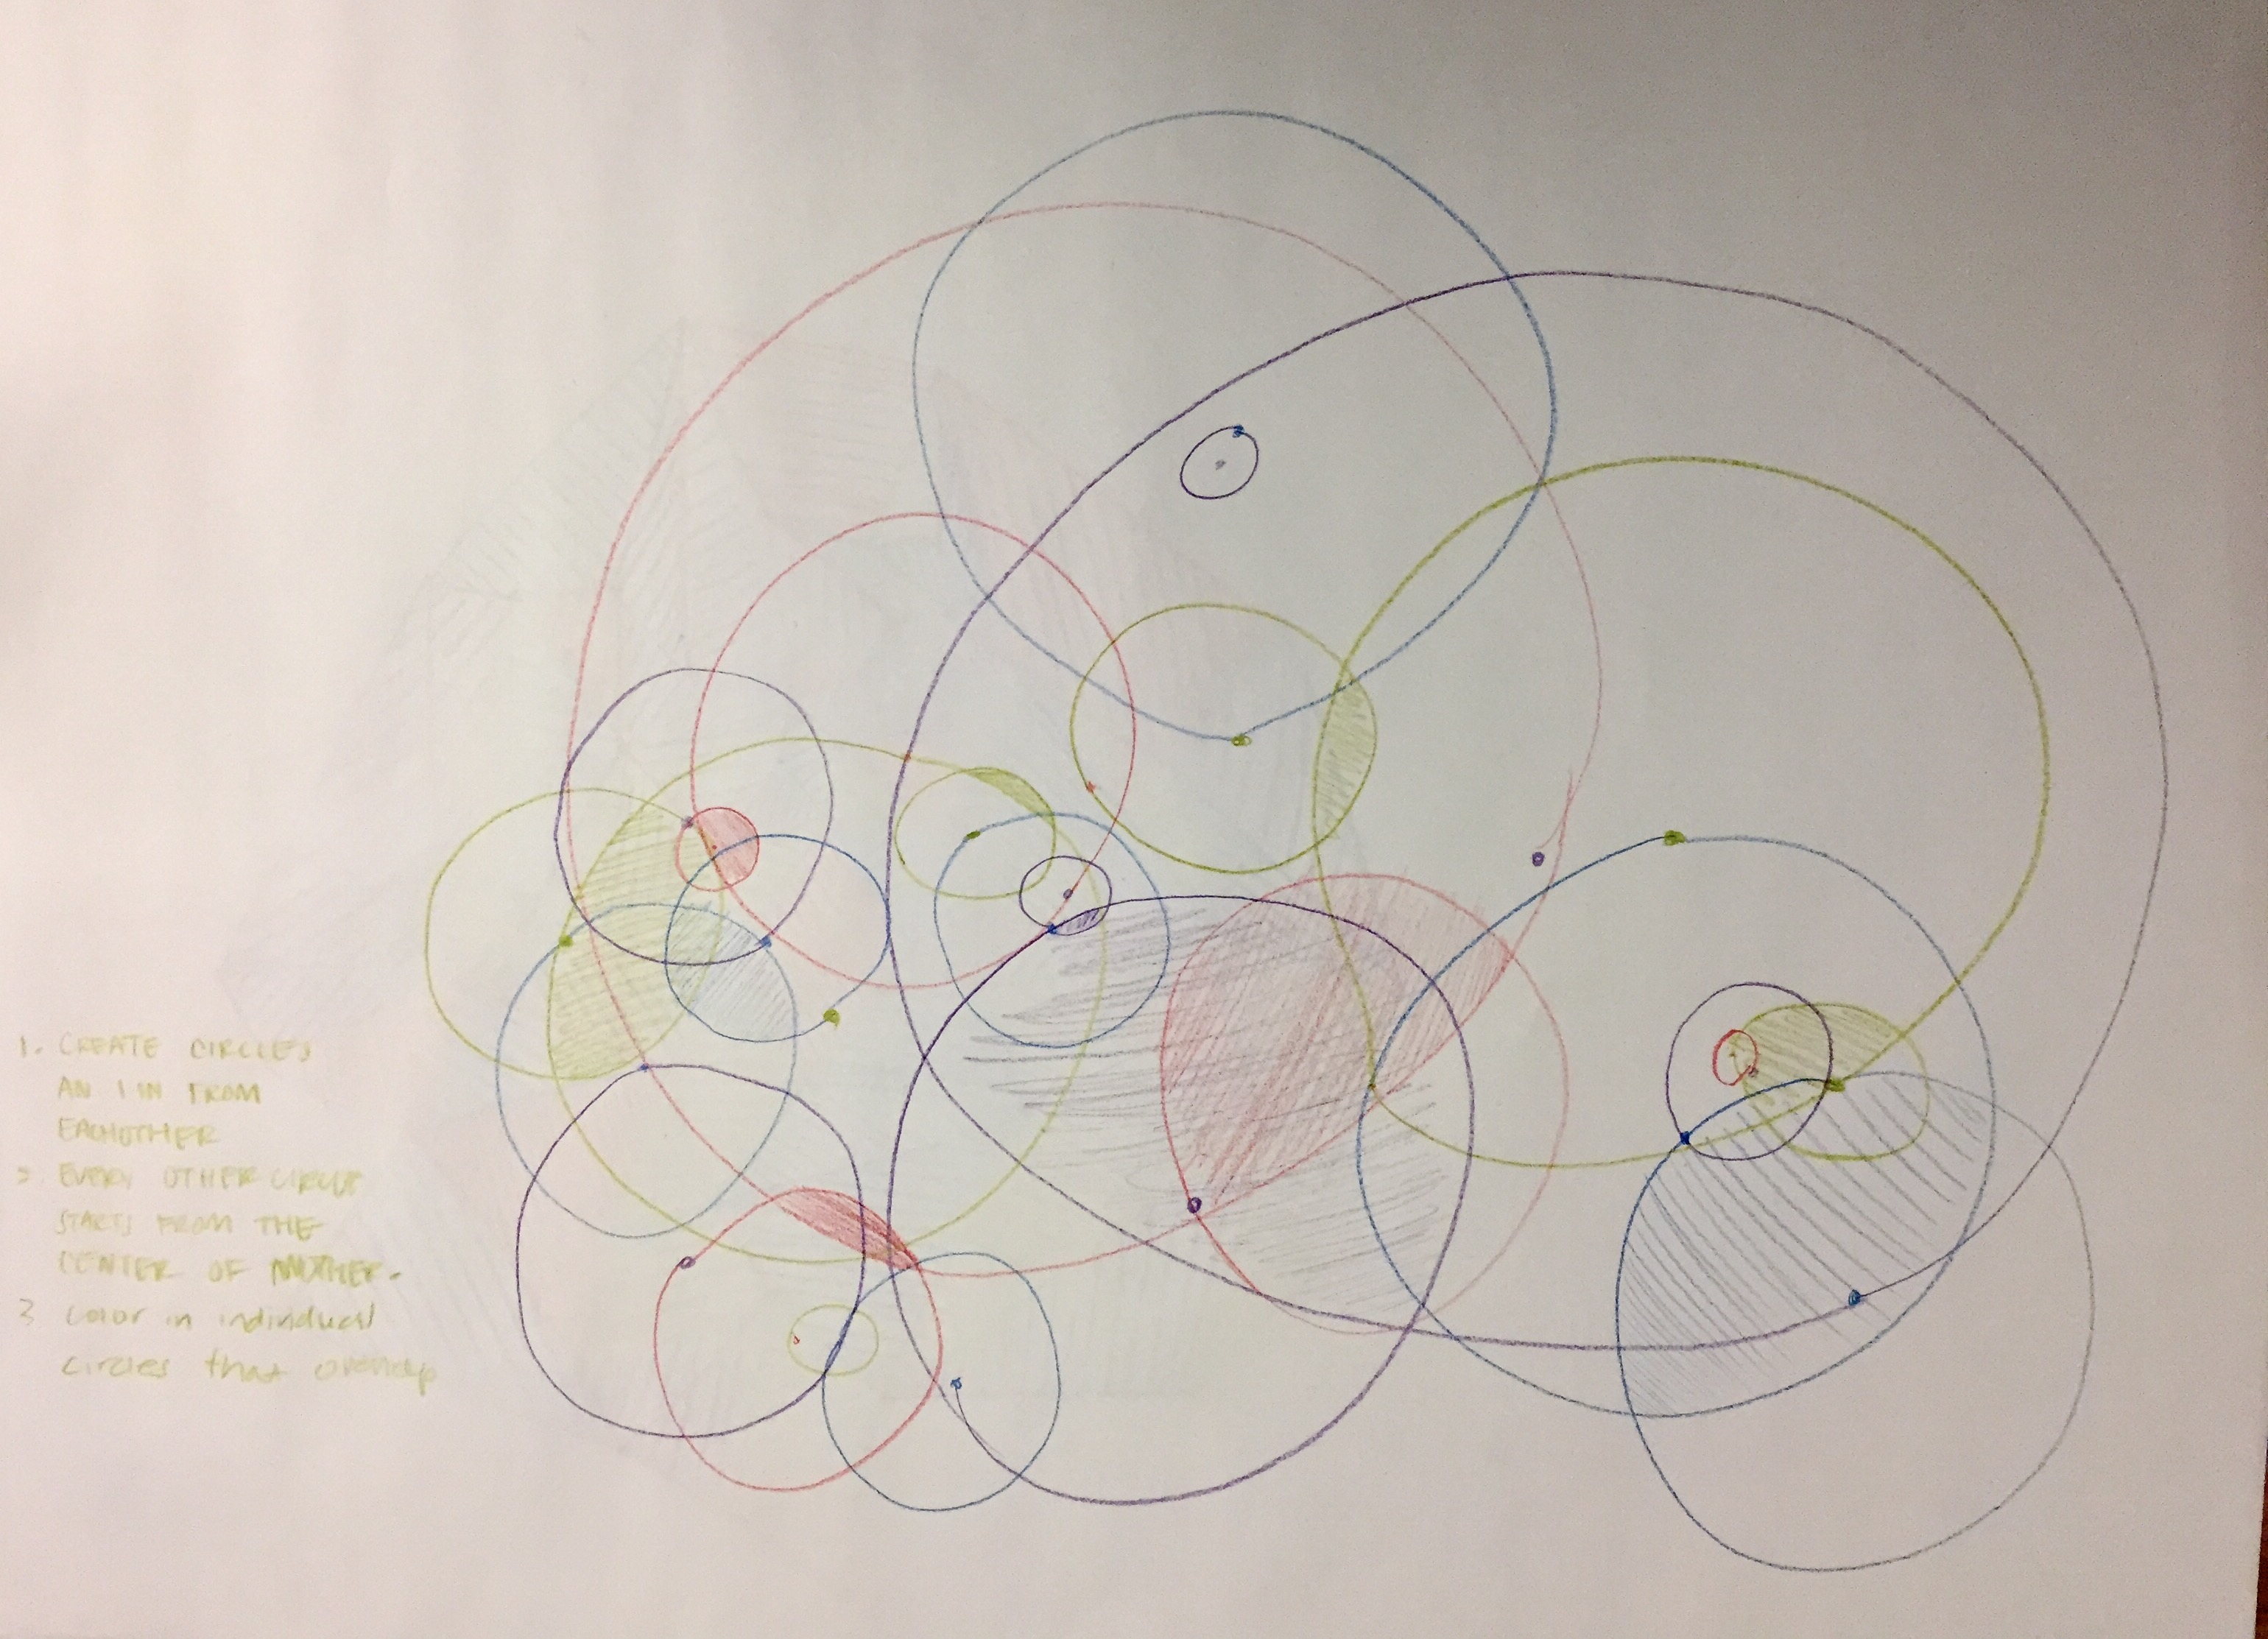 1. CREATE CIRCLES
AN 1 IN FROM
EACHOTHER
2. EVERY OTHER CIRCLE
STARTS FROM THE
CENTER OF ANOTHER.
3 Color in individual
circles that overlap